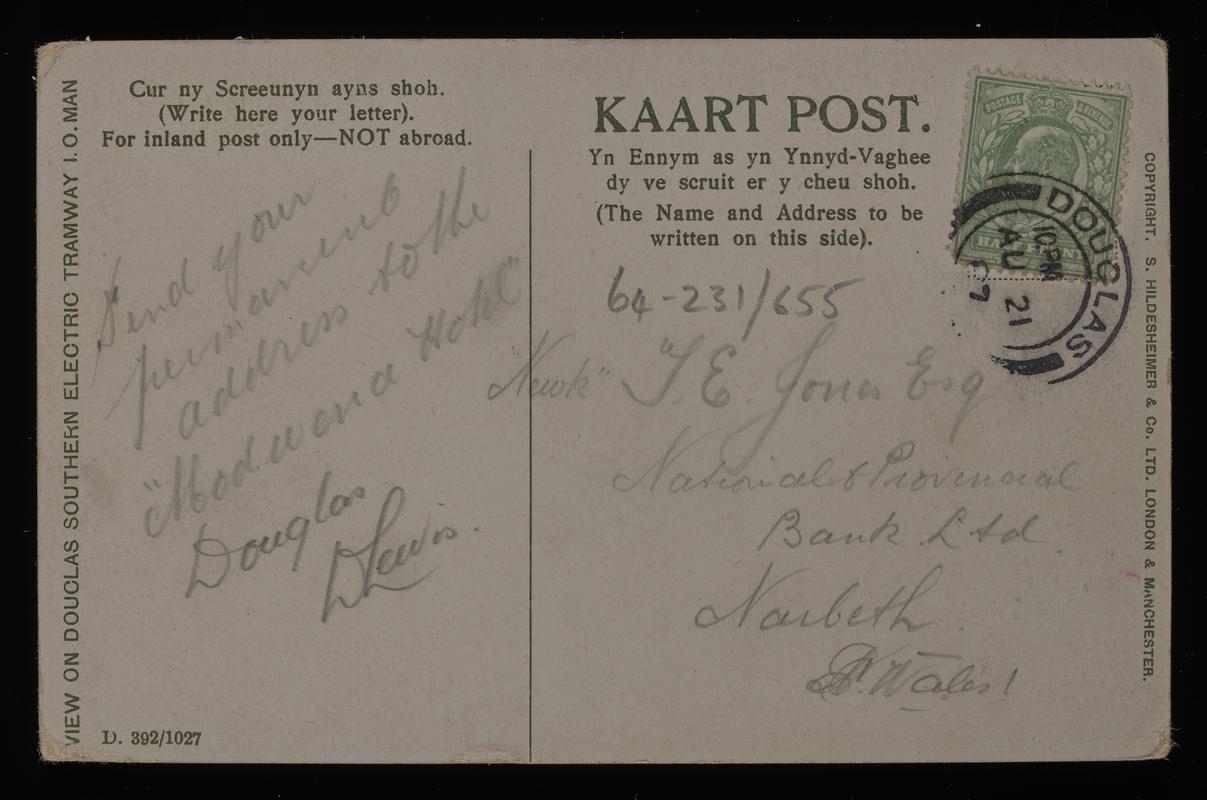 VIEW ON DOUGLAS SOUTHERN ELECTRIC TRAMWAY I.O. MAN
Cur ny Screeunyn ayns shoh.
(Write here your letter).
For inland post only—NOT abroad.
Send your
permanent
address to the
"Modwena Hotel"
Douglas
D Lewis.
D. 392/1027
KAART POST.
Yn Ennym as yn Ynnyd-Vaghee
dy ve scruit er y cheu shoh.
(The Name and Address to be
written on this side).
64-231/655
T. E. Jones Esq
National & Provincial
Bank Ltd.
Narbeth.
S. Wales!
POSTAGE REVENUE
HALF PENNY
DOUGLAS
10. PM
AU 21
07
COPYRIGHT. S. HILDESHEIMER & Co. LTD. LONDON & MANCHESTER.